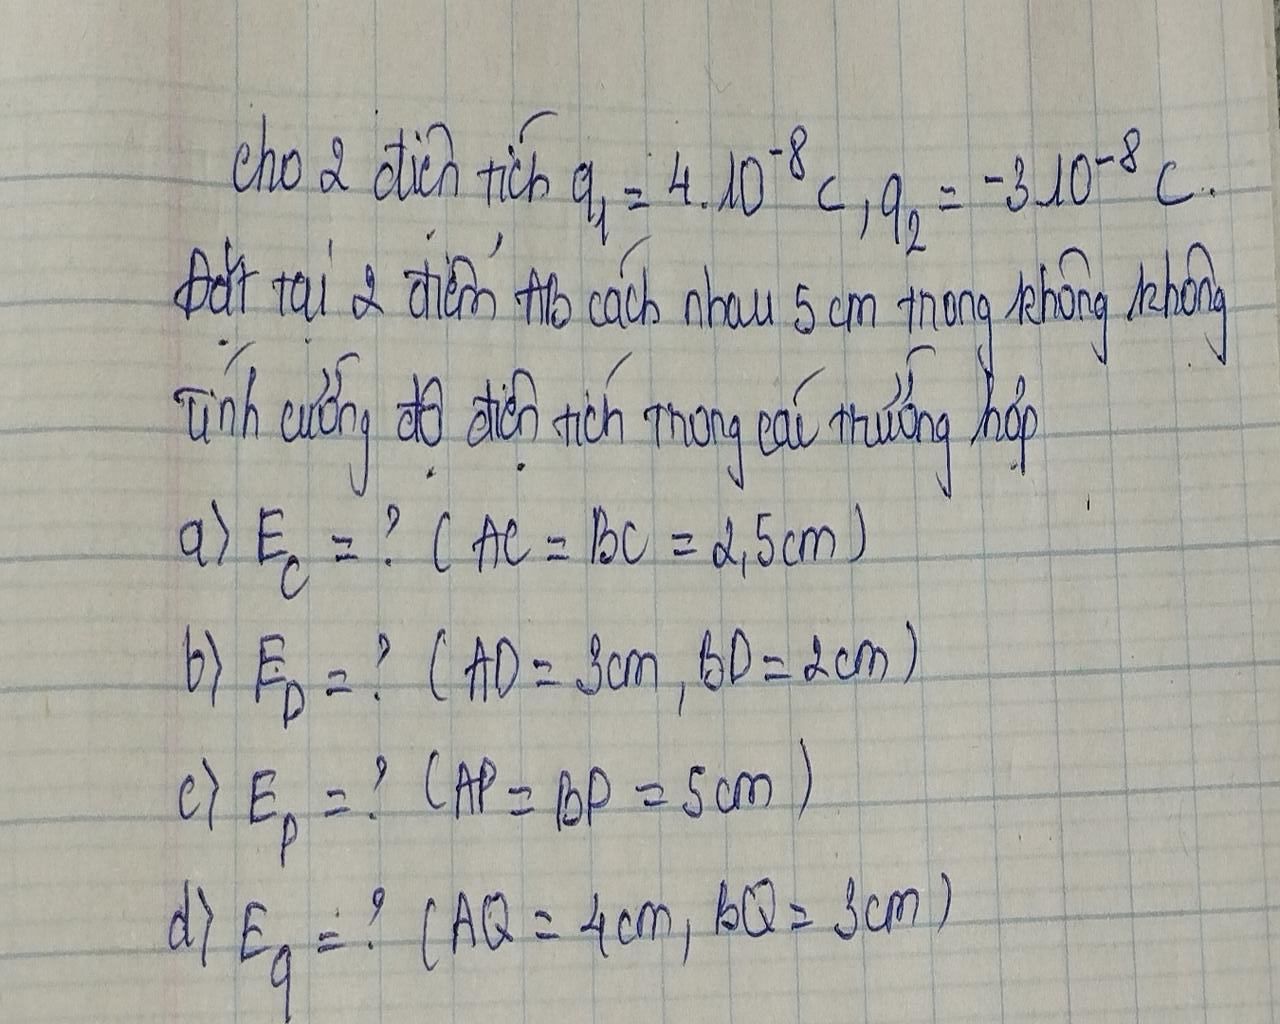 cho 2 điện tích q₁ = 4.10⁻⁸ C, q₂ = -3.10⁻⁸ C.
Đặt tại 2 điểm AB cách nhau 5 cm trong không không
Tính cường độ điện tích trong cái trường hợp
a) E_C = ? (AC = BC = 2,5cm)
b) E_D = ? (AD = 3cm, BD = 2cm)
c) E_P = ? (AP = BP = 5cm)
d) E_q = ? (AQ = 4cm, BQ = 3cm)